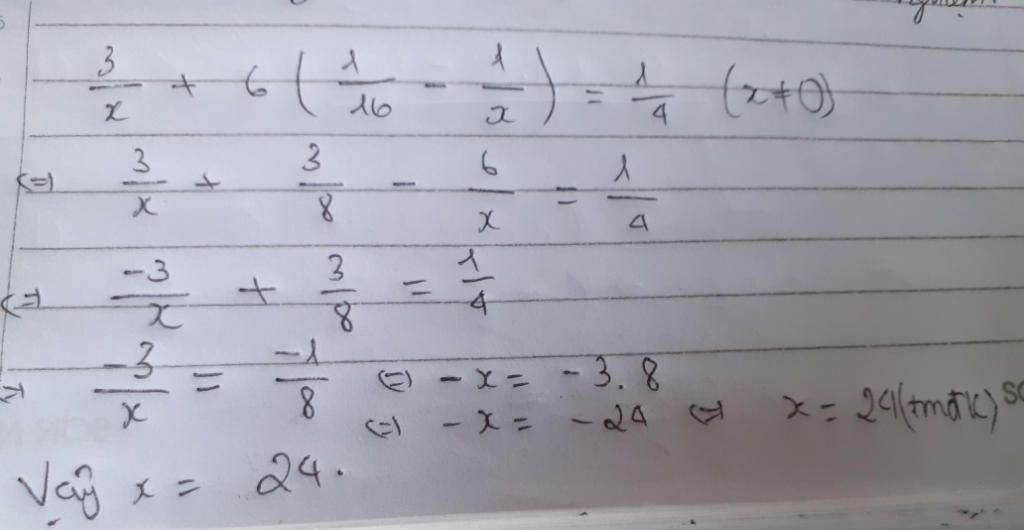 3/x + 6 (1/16 - 1/x) = 1/4 (x ≠ 0)
<=> 3/x + 3/8 - 6/x = 1/4
<=> -3/x + 3/8 = 1/4
=> -3/x = -1/8 <=> -x = -3.8
<=> -x = -24 <=> x = 24 (tmđk)
Vậy x = 24.